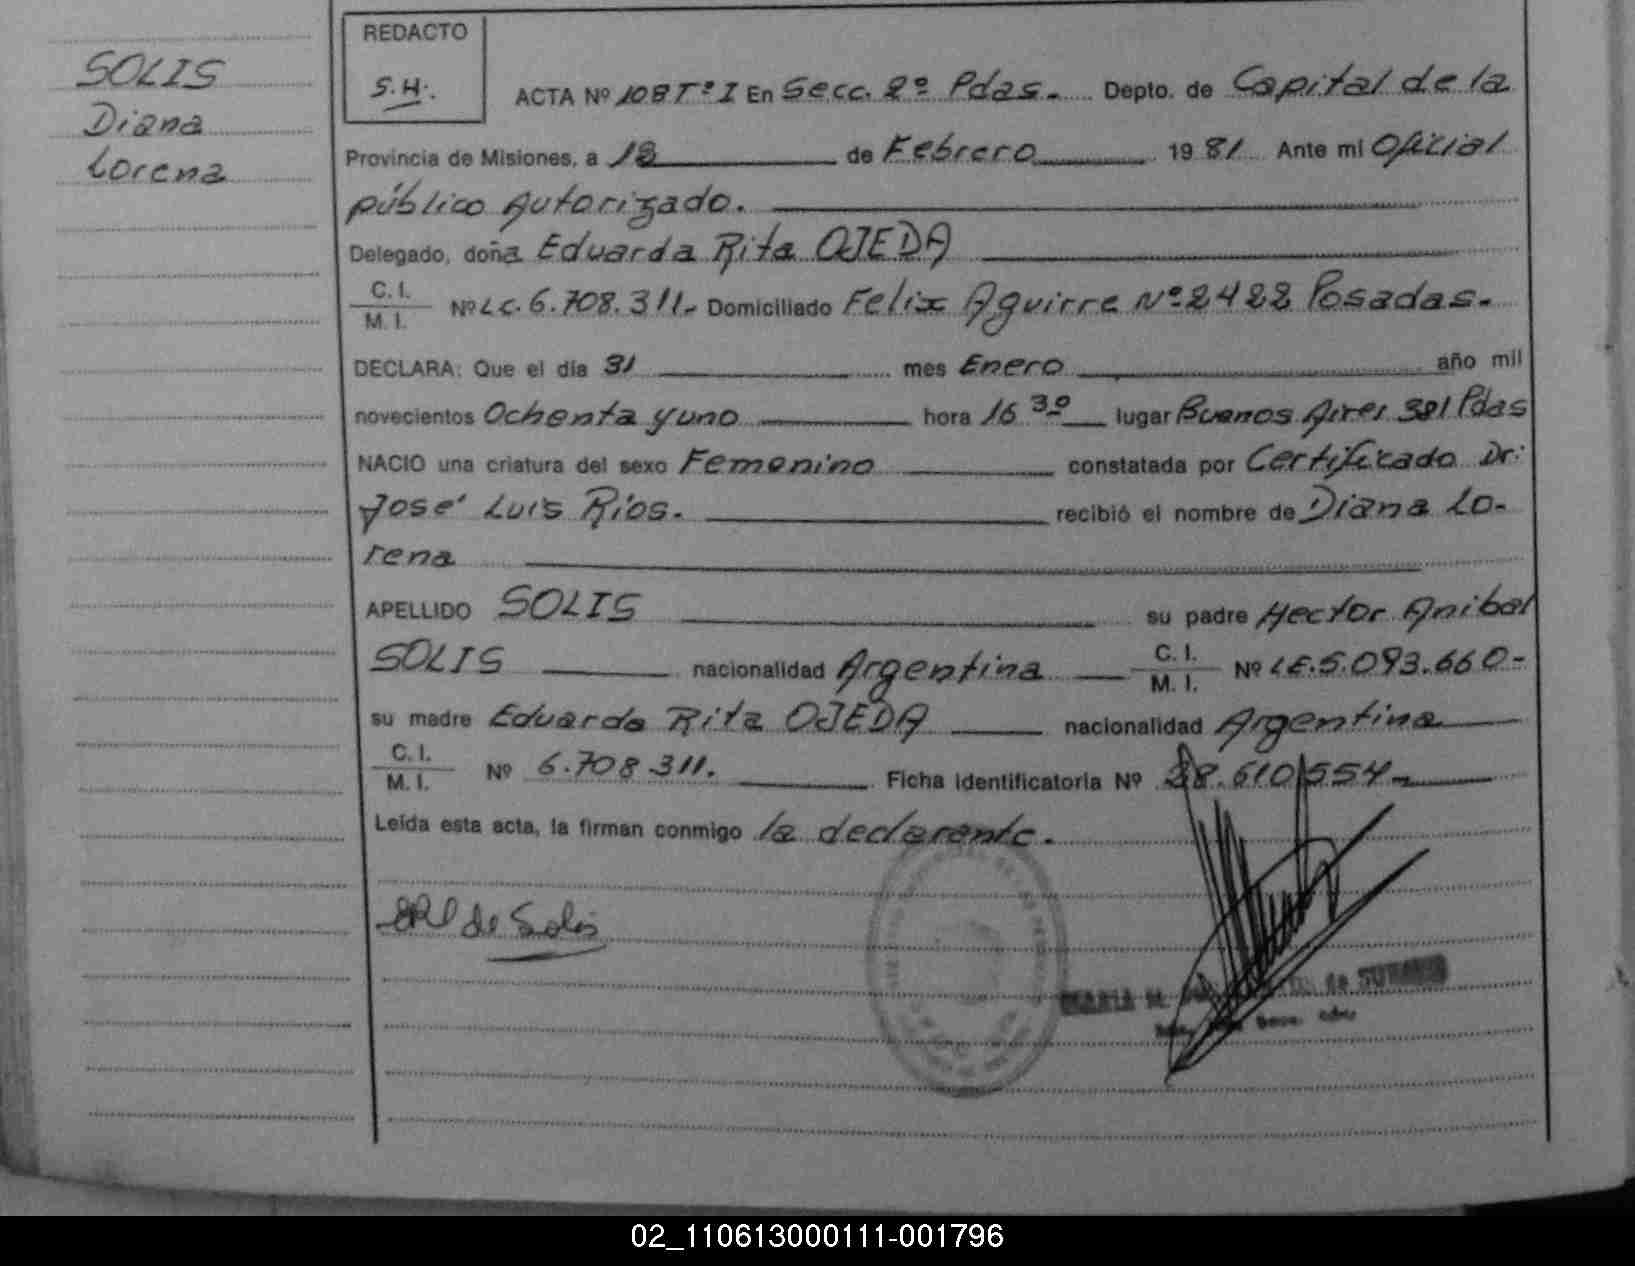 SOLIS
Diana
Lorena
REDACTO
S.H.
ACTA Nº 108 Tº I En Secc. 2º Pdas. Depto. de Capital de la
Provincia de Misiones, a 18 de Febrero 1981 Ante mi Oficial
público Autorizado.
Delegado, doña Eduarda Rita OJEDA
C. I.
M. I.
Nº LC. 6.708.311.- Domiciliado Felix Aguirre Nº 2422 Posadas.
DECLARA: Que el día 31 mes Enero año mil
novecientos Ochenta y uno hora 16 30 lugar Buenos Aires 381 Pdas
NACIO una criatura del sexo Femenino constatada por Certificado Dr:
José Luis Ríos. recibió el nombre de Diana Lo-
rena
APELLIDO SOLIS su padre Hector Anibal
SOLIS nacionalidad Argentina C. I.
M. I. Nº LE. 5.093.660-
su madre Eduarda Rita OJEDA nacionalidad Argentina
C. I.
M. I.
Nº 6.708.311. Ficha identificatoria Nº 28.610.554-
Leída esta acta, la firman conmigo la declarante.
ERO de Solis
MARIA M. de
02_110613000111-001796